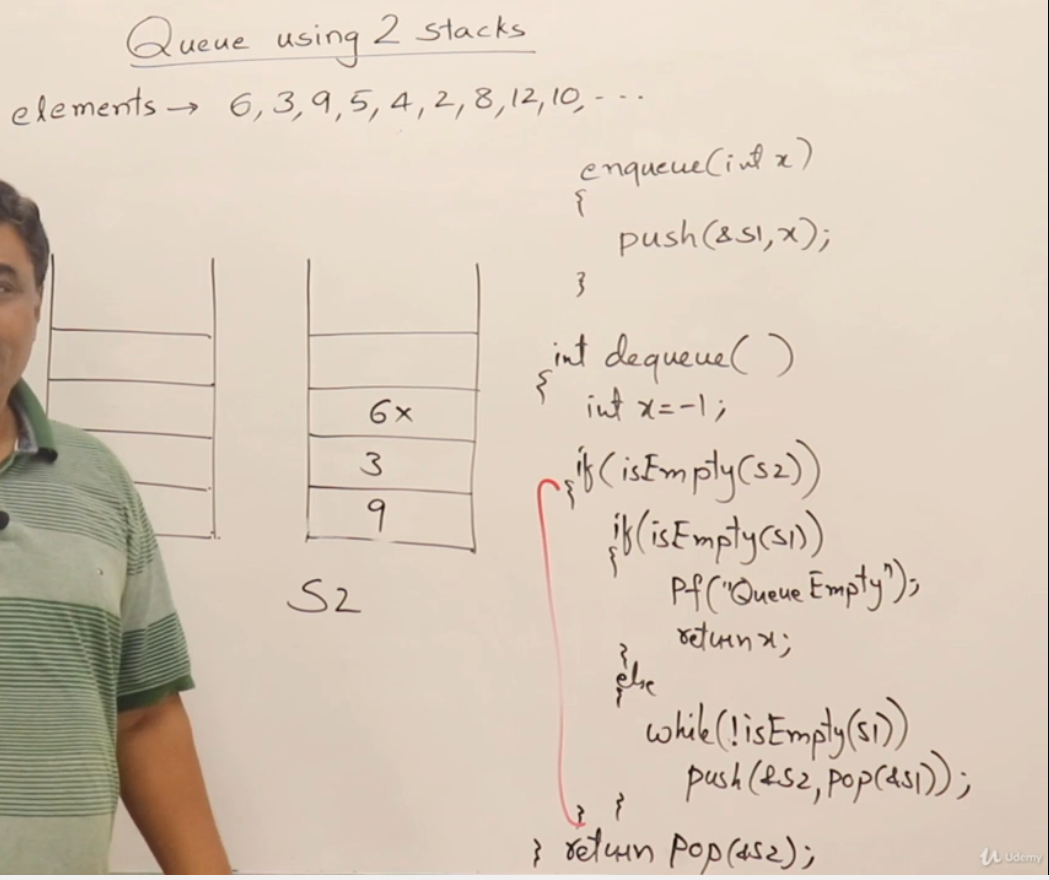 Queue using 2 stacks
elements → 6, 3, 9, 5, 4, 2, 8, 12, 10, - - -
enqueue(int x)
{
push(&S1, x);
}
int dequeue( )
{
int x = -1;
if(isEmpty(S2))
{
if(isEmpty(S1))
{
Pf("Queue Empty");
return x;
}
else
{
while(!isEmpty(S1))
push(&S2, pop(&S1));
}
}
return pop(&S2);
}
6x
3
9
S2
Udemy